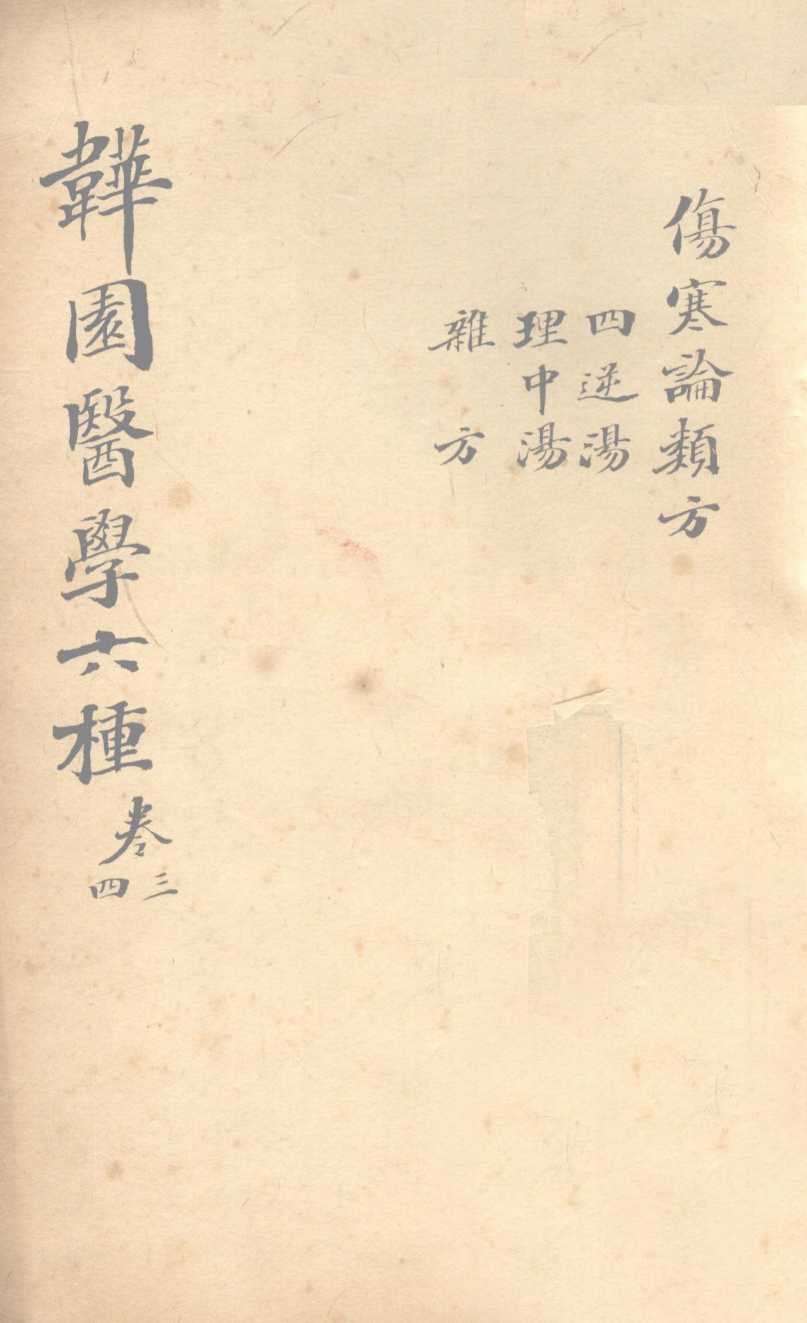 傷寒論類方
四逆湯
理中湯
雜方
韡園醫學六種
卷三四